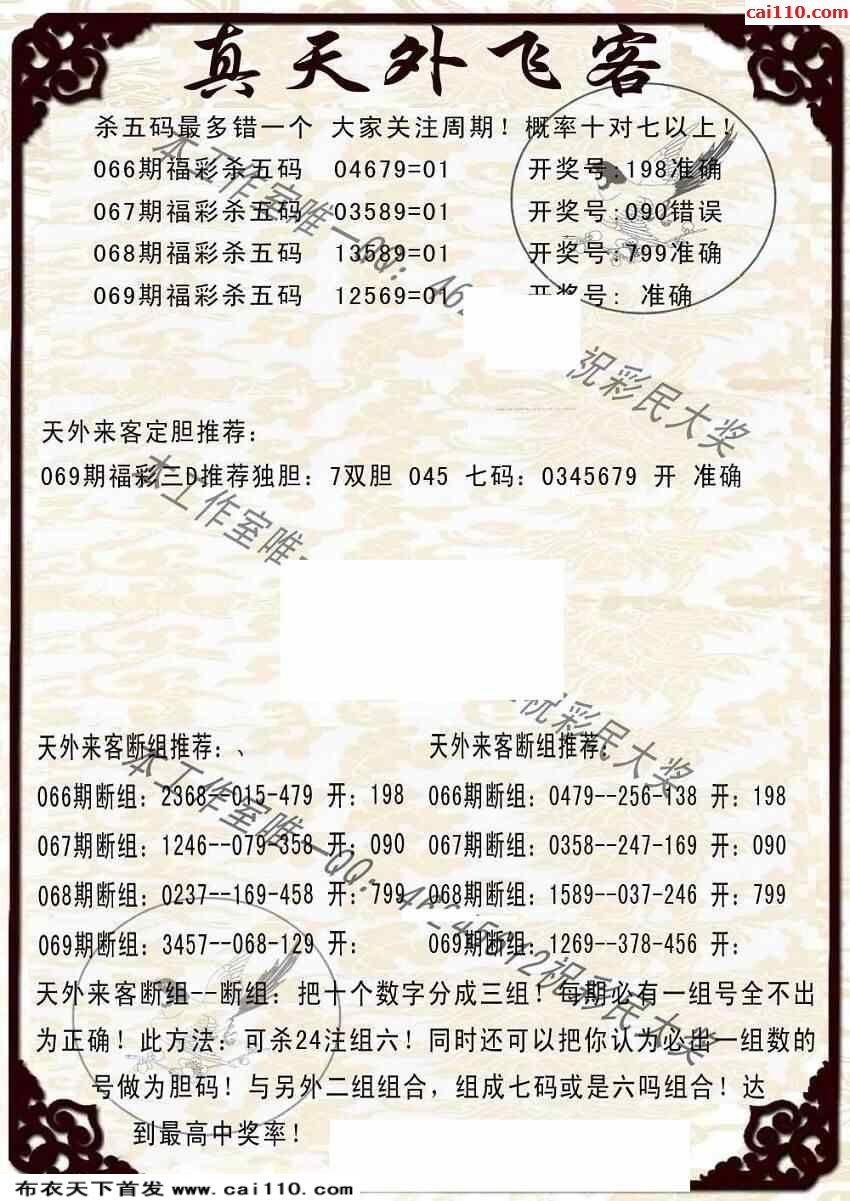 cai110.com
真天外飞客
杀五码最多错一个 大家关注周期！概率十对七以上！
066期福彩杀五码 04679=01 开奖号:198准确
067期福彩杀五码 03589=01 开奖号:090错误
068期福彩杀五码 13589=01 开奖号:799准确
069期福彩杀五码 12569=01 开奖号: 准确
本工作室唯一QQ：46
祝彩民大奖
天外来客定胆推荐：
069期福彩三D推荐独胆：7双胆 045 七码：0345679 开 准确
本工作室唯一
祝彩民大奖
天外来客断组推荐：、 天外来客断组推荐：
066期断组：2368--015-479 开：198 066期断组：0479--256-138 开：198
067期断组：1246--079-358 开：090 067期断组：0358--247-169 开：090
068期断组：0237--169-458 开：799 068期断组：1589--037-246 开：799
069期断组：3457--068-129 开： 069期断组：1269--378-456 开：
本工作室唯一QQ：
祝彩民大奖
天外来客断组--断组：把十个数字分成三组！每期必有一组号全不出
为正确！此方法：可杀24注组六！同时还可以把你认为必出一组数的
号做为胆码！与另外二组组合，组成七码或是六吗组合！达
到最高中奖率！
布衣天下首发 www.cai110.com